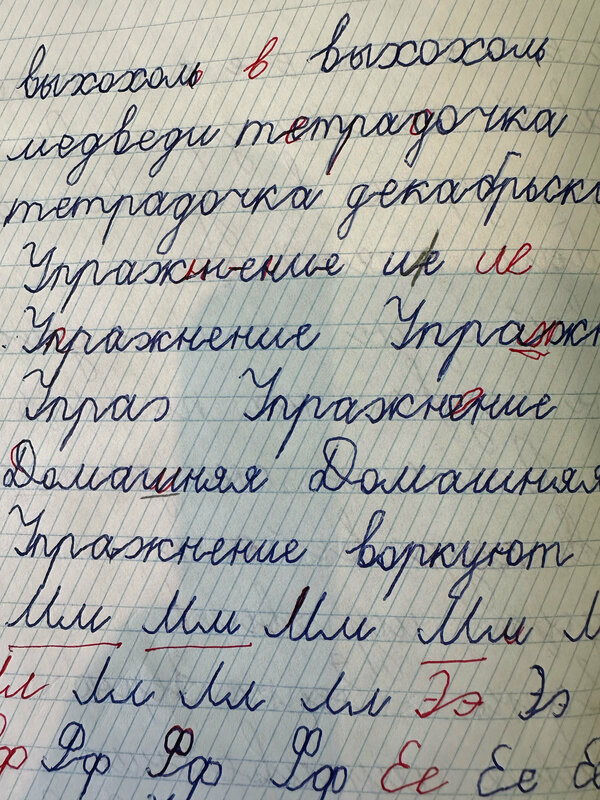 выхохоль в выхохоль
медведи тетрадочка
тетрадочка декабрьск
Упражнение не ие
Упражнение Упраж
Упраз Упражнение
Домашняя Домашняя
Упражнение воркуют
Мм Мм Мм Мм М
Лл Лл Лл Ээ Ээ
Фф Фф Фф Ее Ее